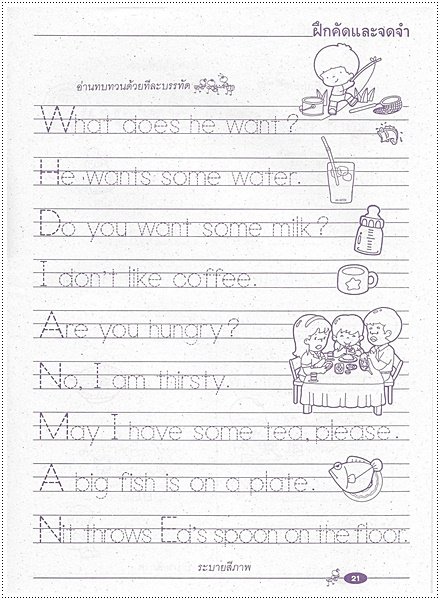 ฝึกคัดและจดจำ
อ่านทบทวนด้วยทีละบรรทัด
What does he want?
He wants some water.
Do you want some milk?
I don't like coffee.
Are you hungry?
No, I am thirsty.
May I have some tea, please.
A big fish is on a plate.
Nit throws Ed's spoon on the floor.
ระบายสีภาพ
21